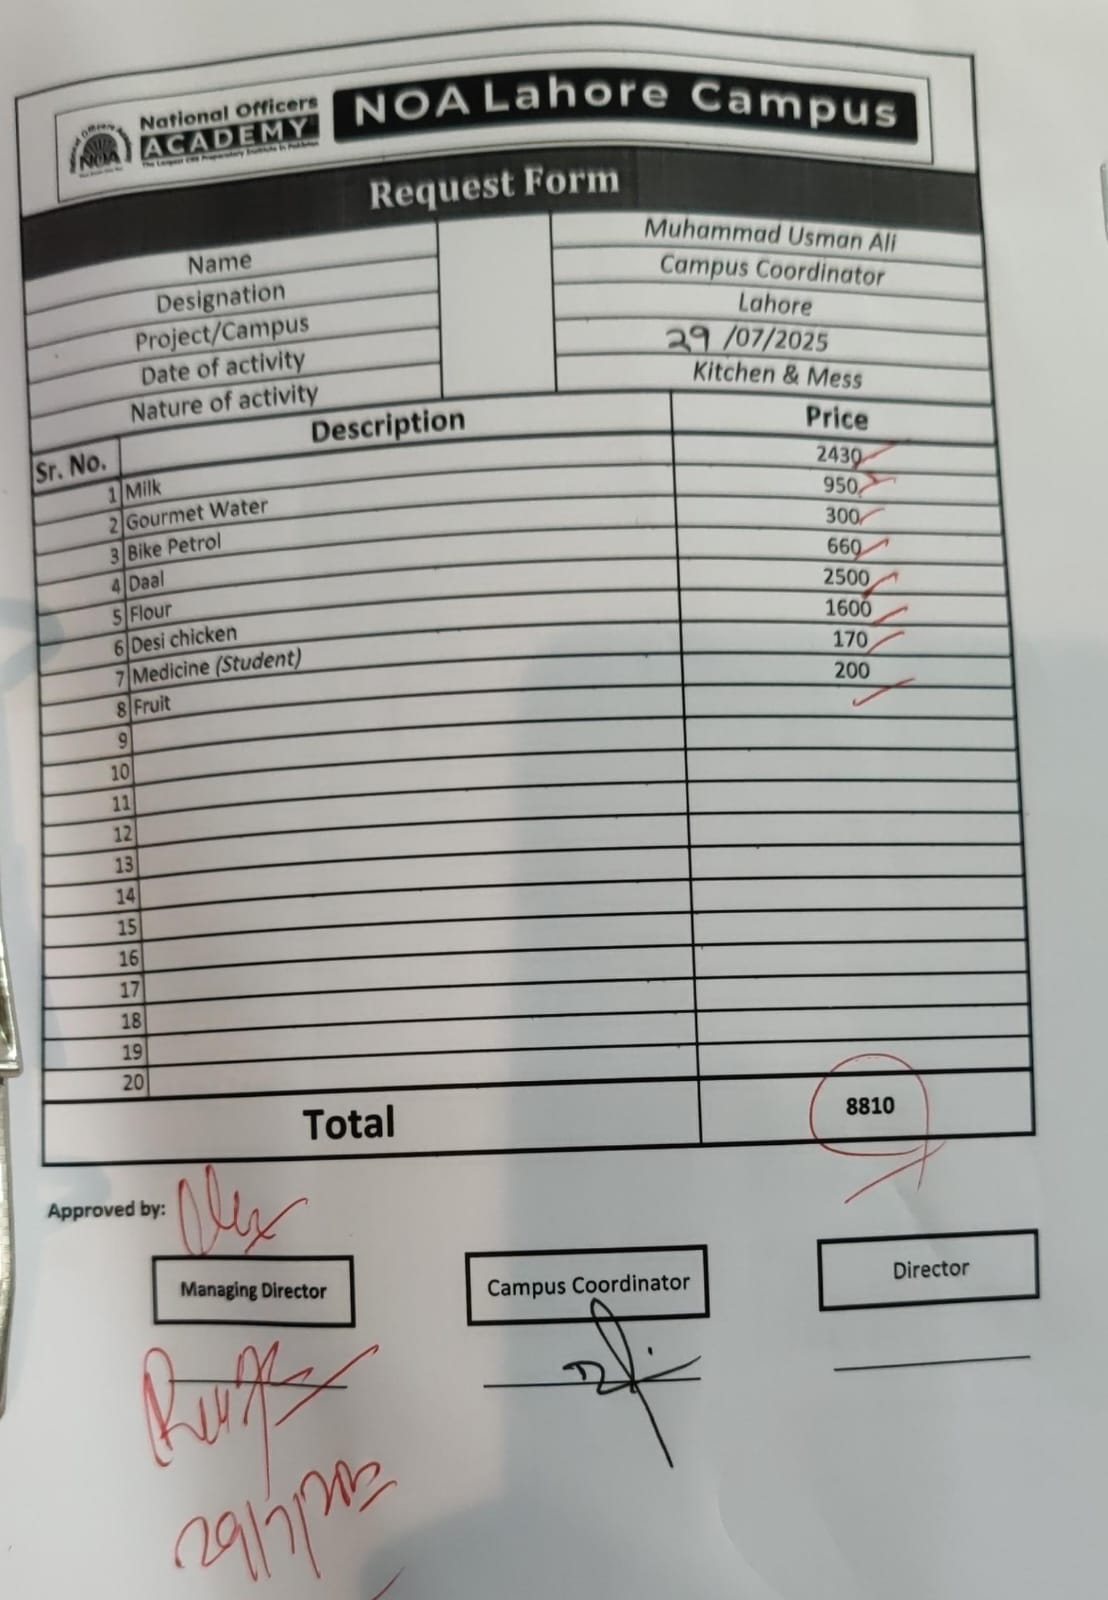 National Officers
ACADEMY
The Largest CSS Preparatory Institute In Pakistan
NOA
NOA Lahore Campus
Request Form
Name Muhammad Usman Ali
Designation Campus Coordinator
Project/Campus Lahore
Date of activity 29 /07/2025
Nature of activity Kitchen & Mess
Sr. No. Description Price
1 Milk 2430
2 Gourmet Water 950
3 Bike Petrol 300
4 Daal 660
5 Flour 2500
6 Desi chicken 1600
7 Medicine (Student) 170
8 Fruit 200
9
10
11
12
13
14
15
16
17
18
19
20
Total 8810
Approved by:
Managing Director Campus Coordinator Director